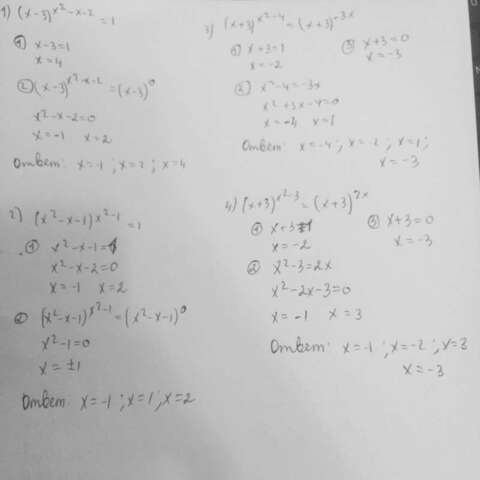 1) (x-3)^{x²-x-2} = 1
① x-3=1
x=4
② (x-3)^{x²-x-2} = (x-3)^0
x²-x-2=0
x=-1 x=2
Ответ: x=-1 ; x=2 ; x=4
2) (x²-x-1)^{x²-1} = 1
① x²-x-1=1
x²-x-2=0
x=-1 x=2
② (x²-x-1)^{x²-1} = (x²-x-1)^0
x²-1=0
x=±1
Ответ: x=-1 ; x=1 ; x=2
3) (x+3)^{x²-4} = (x+3)^{-3x}
① x+3=1
x=-2
③ x+3=0
x=-3
② x²-4=-3x
x²+3x-4=0
x=-4 x=1
Ответ: x=-4 ; x=-2 ; x=1 ;
x=-3
4) (x+3)^{x²-3} = (x+3)^{2x}
① x+3=1
x=-2
③ x+3=0
x=-3
② x²-3=2x
x²-2x-3=0
x=-1 x=3
Ответ: x=-1 ; x=-2 ; x=3
x=-3